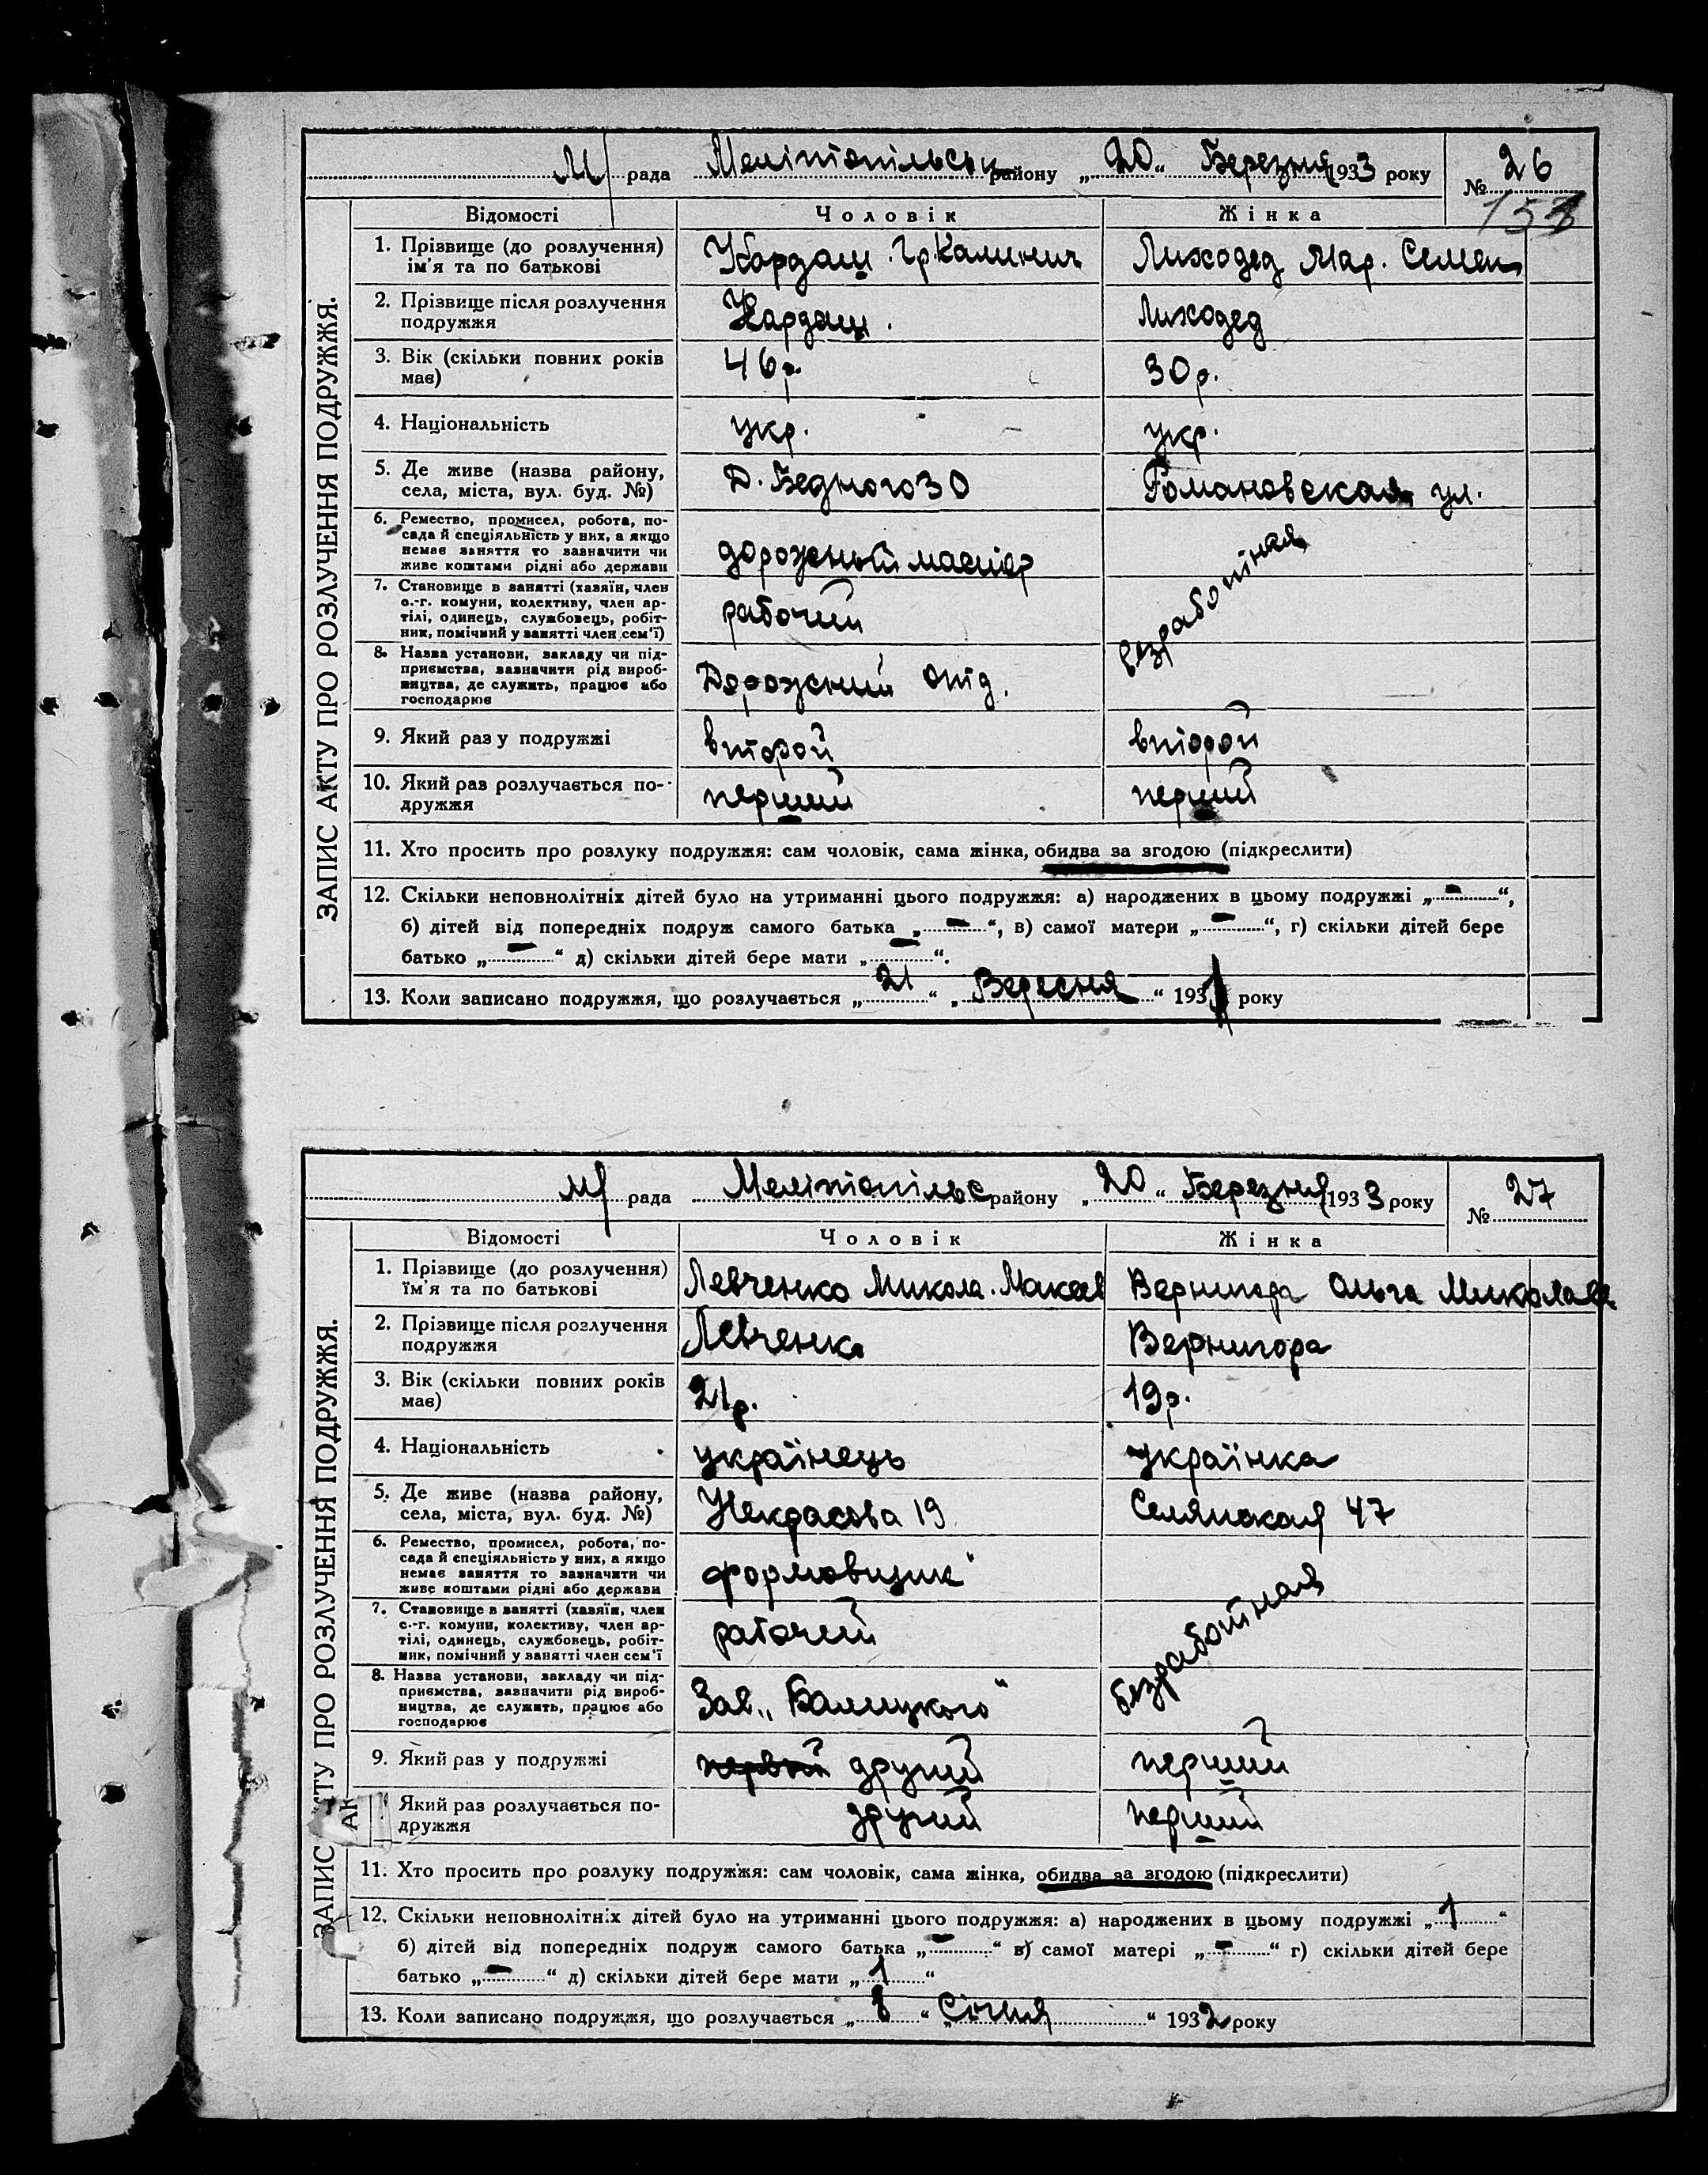 М/ рада Мелітопільськ району „20“ Березня 1933 року № 26
Відомості Чоловік Жінка
ЗАПИС АКТУ ПРО РОЗЛУЧЕННЯ ПОДРУЖЖЯ.
1. Прізвище (до розлучення) Кардаш Гр. Калинич Лиходед Мар. Семен
ім'я та по батькові
2. Прізвище після розлучення Кардаш. Лиходед
подружжя
3. Вік (скільки повних років 46 р. 30 р.
має)
4. Національність укр. укр.
5. Де живе (назва району, Д. Бедного 30 Романовская ул.
села, міста, вул. буд. №)
6. Ремество, промисел, робота, по-
сада й спеціяльність у них, а якщо
немає заняття то зазначити чи дорожный мастер безработная
живе коштами рідні або держави
7. Становище в занятті (хазяїн, член
с.-г. комуни, колективу, член ар- рабочий
тілі, одинець, службовець, робіт-
ник, помічний у занятті член сем'ї)
8. Назва установи, закладу чи під-
приємства, зазначити рід вироб- Дорожний отд.
ництва, де служить, працює або
господарює
9. Який раз у подружжі второй второй
10. Який раз розлучається по- перший перший
дружжя
11. Хто просить про розлуку подружжя: сам чоловік, сама жінка, обидва за згодою (підкреслити)
12. Скільки неповнолітніх дітей було на утриманні цього подружжя: а) народжених в цьому подружжі „-“,
б) дітей від попередніх подруж самого батька „-“, в) самої матери „-“, г) скільки дітей бере
батько „-“ д) скільки дітей бере мати „-“.
13. Коли записано подружжя, що розлучається „21“ „Вересня“ 193 року
М/ рада Мелітопільс району „20“ Березня 1933 року № 27
Відомості Чоловік Жінка
ЗАПИС АКТУ ПРО РОЗЛУЧЕННЯ ПОДРУЖЖЯ.
1. Прізвище (до розлучення) Левченко Микола. Макеев Вернигора Ольга Миколаев
їм'я та по батькові
2. Прізвище після розлучення Левченко Вернигора
подружжя
3. Вік (скільки повних років 21 р. 19 р.
має)
4. Національність українець українка
5. Де живе (назва району, Некрасова 19 Селянская 47
села, міста, вул. буд. №)
6. Ремество, промисел, робота, по-
сада й спеціяльність у них, а якщо формовщик
немає заняття то зазначити чи безработная
живе коштами рідні або держави
7. Становище в занятті (хазяїн, член
с.-г. комуни, колективу, член ар- рабочий
тілі, одинець, службовець, робіт-
ник, помічний у занятті член сем'ї
8. Назва установи, закладу чи під-
приємства, зазначити рід вироб- Зав. „Балицкого“
ництва, де служить, працює або
господарює
9. Який раз у подружжі первый другий перший
Який раз розлучається по- другий перший
дружжя
11. Хто просить про розлуку подружжя: сам чоловік, сама жінка, обидва за згодою (підкреслити)
12. Скільки неповнолітніх дітей було на утриманні цього подружжя: а) народжених в цьому подружжі „1“
б) дітей від попередніх подруж самого батька „-“ в) самої матері „-“ г) скільки дітей бере
батько „-“ д) скільки дітей бере мати „1“
13. Коли записано подружжя, що розлучається „8“ „Січня“ 1932 року